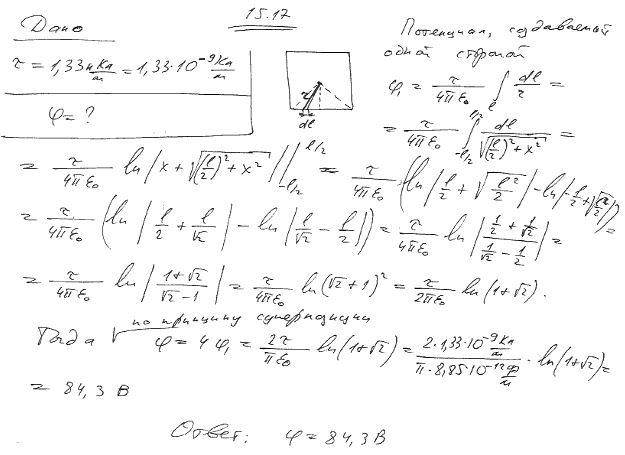 15.17
Дано
τ = 1,33 нКл/м = 1,33·10⁻⁹ Кл/м
φ = ?
r
dl
Потенциал, создаваемый
одной стороной
φ₁ = τ/(4πε₀) ∫_l dl/r =
= τ/(4πε₀) ∫_{-l/2}^{l/2} dl/√((l/2)² + x²) =
= τ/(4πε₀) ln|x + √((l/2)² + x²)| |_{-l/2}^{l/2} = τ/(4πε₀) (ln|l/2 + √(l²/2)| - ln|-l/2 + √(l²/2)|) =
= τ/(4πε₀) (ln|l/2 + l/√2| - ln|l/√2 - l/2|) = τ/(4πε₀) ln|(1/2 + 1/√2)/(1/√2 - 1/2)| =
= τ/(4πε₀) ln|(1+√2)/(√2-1)| = τ/(4πε₀) ln(√2+1)² = τ/(2πε₀) ln(1+√2).
Тогда по принципу суперпозиции
φ = 4φ₁ = 2τ/(πε₀) ln(1+√2) = (2·1,33·10⁻⁹ Кл/м)/(π·8,85·10⁻¹² Ф/м) · ln(1+√2) =
= 84,3 В
Ответ: φ = 84,3 В